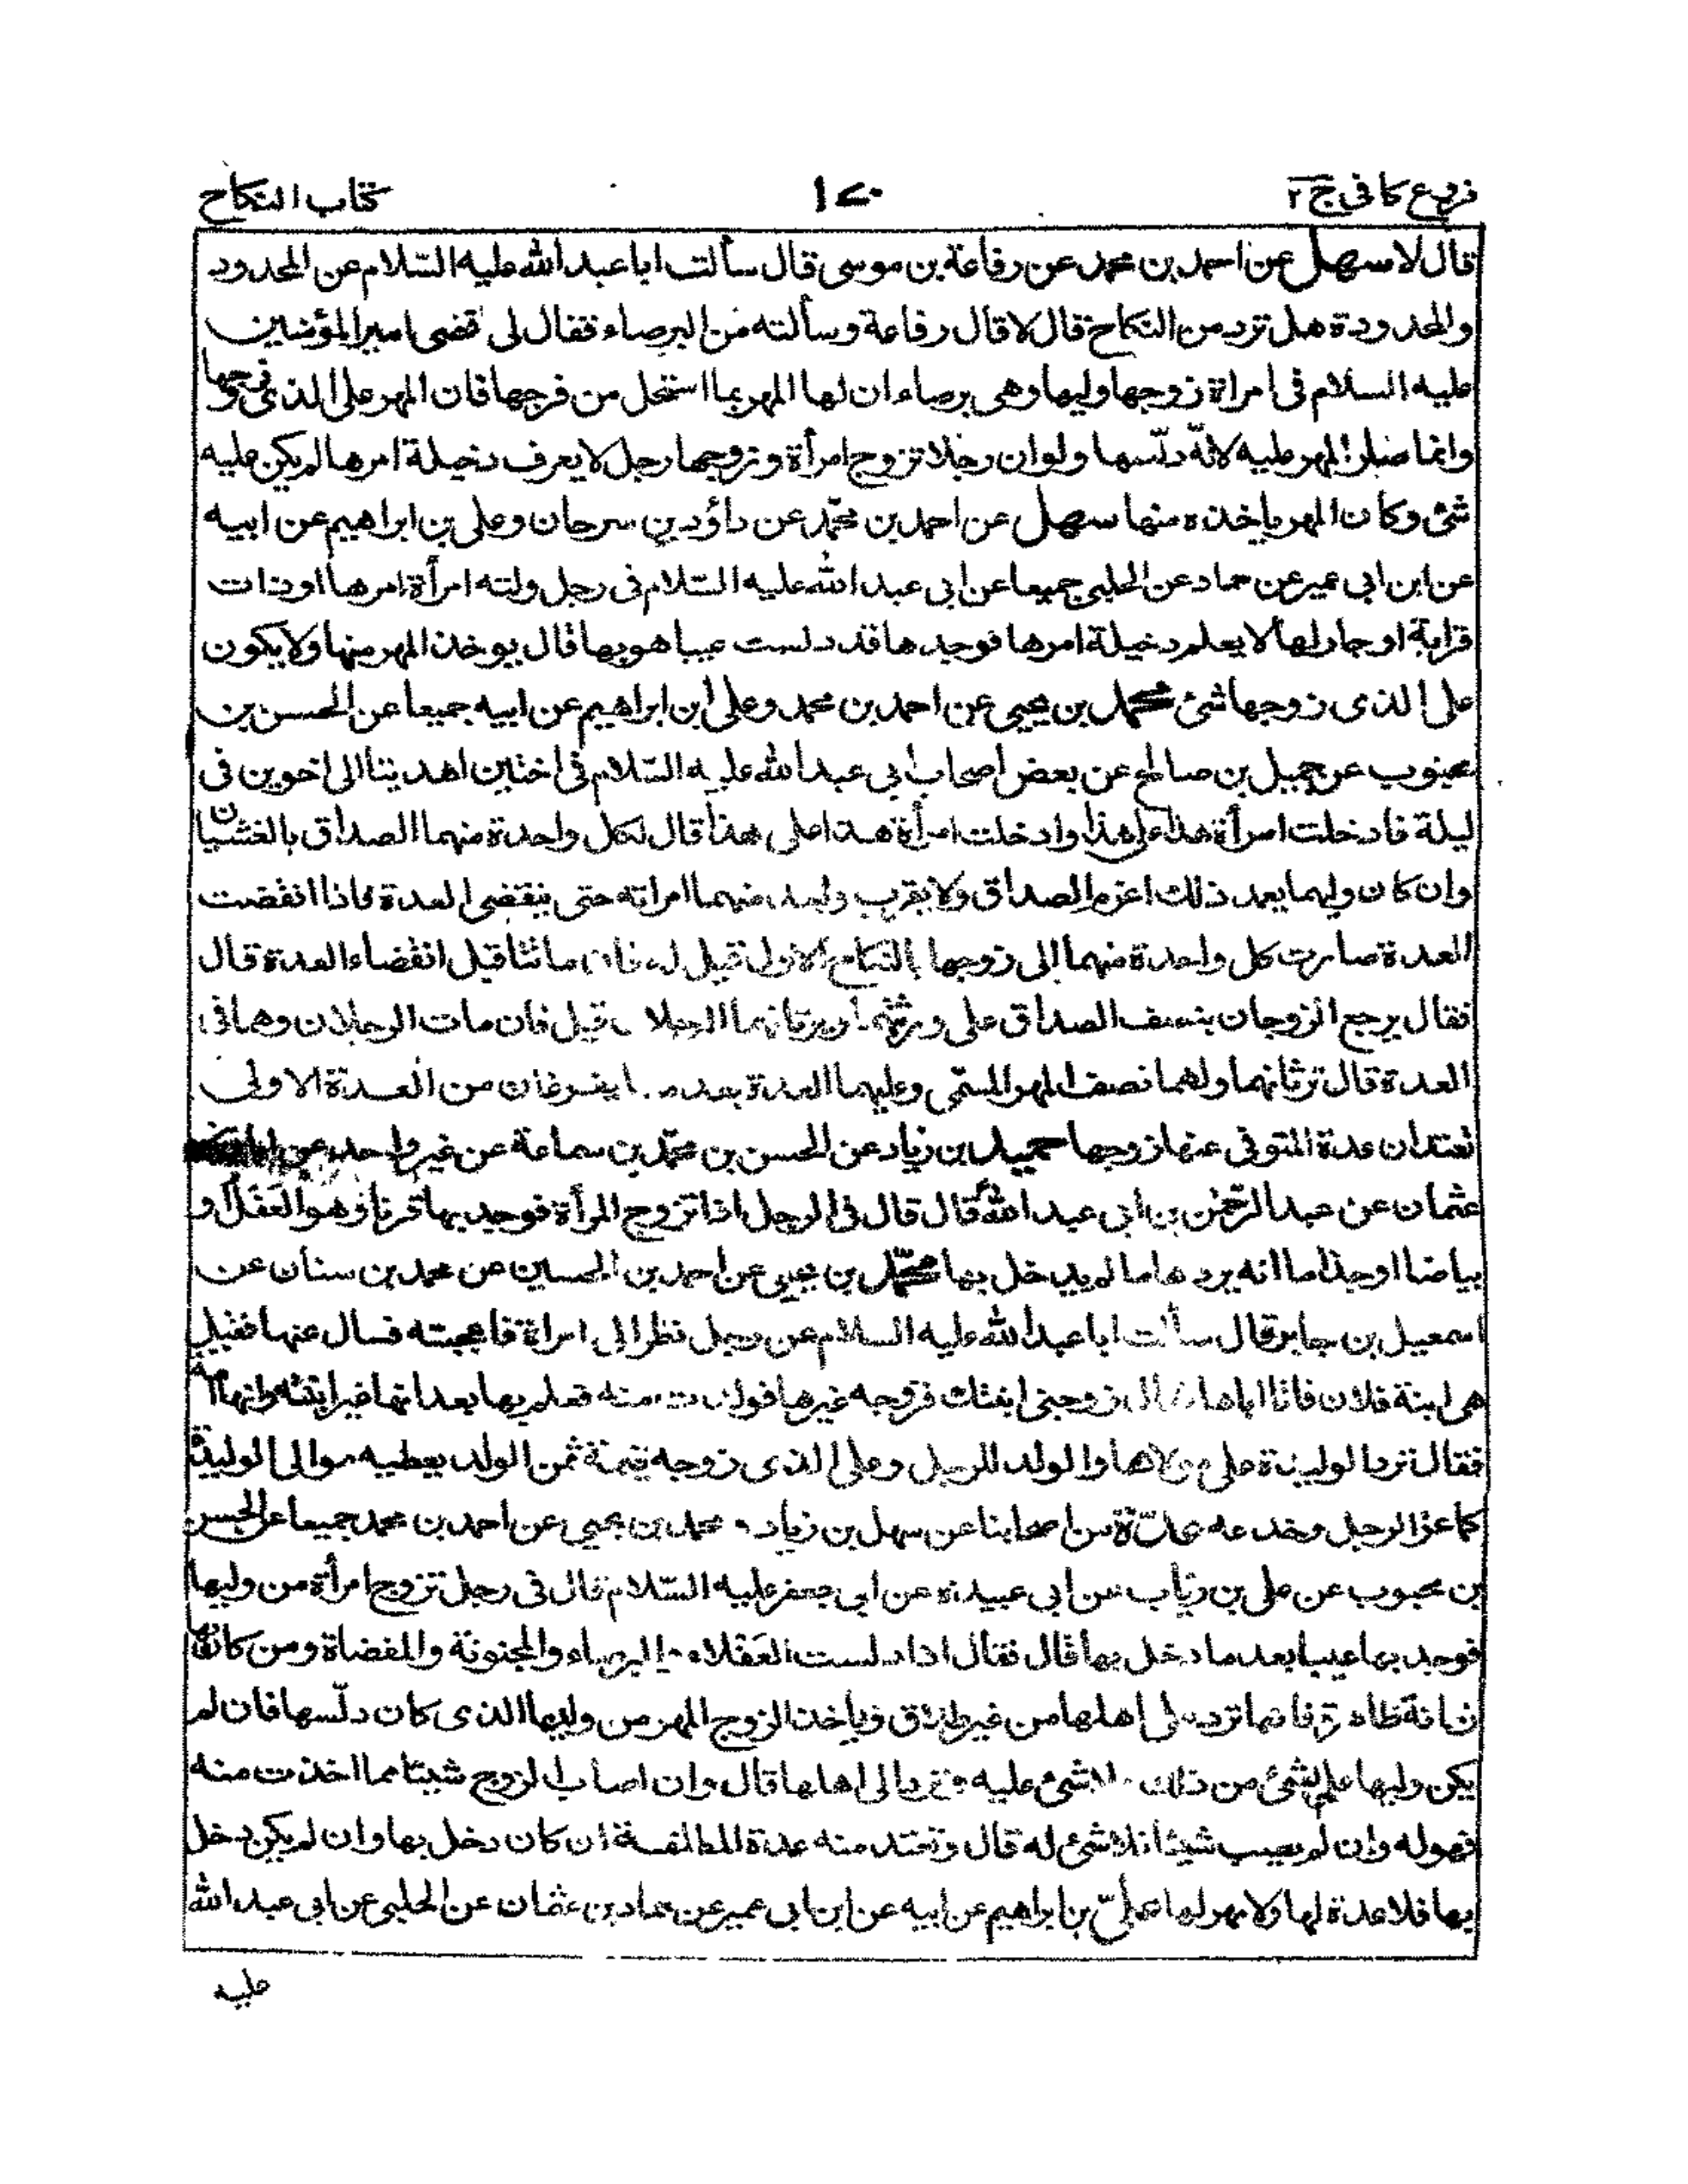 فروع كافى ج ٢
١٧٠
كتاب النكاح
قال لا سهل عن احمد بن محمد عن رفاعة بن موسى قال سألت ابا عبد الله عليه السّلام عن المحدود
والمحدودة هل ترد من النكاح قال لا قال رفاعة وسألته من البرصاء فقال لى قضى امير المؤمنين
عليه السلام فى امراة زوجها وليها وهى برصاء ان لها المهر بما استحل من فرجها فان المهر على الذى زوجها
وانما صار المهر عليه لانّه دلّسها ولو ان رجلا تزوج امرأة وزوجها رجل لا يعرف دخيلة امرها لم يكن عليه
شئ وكان المهر ياخذه منها سهل عن احمد بن محمّد عن داؤد بن سرحان وعلى بن ابراهيم عن ابيه
عن ابن ابى عمير عن حماد عن الحلبى جميعا عن ابى عبد الله عليه السّلام فى رجل ولته امرأة امرها او ذات
قرابة او جار لها لا يعلم دخيلة امرها فوجدها قد دلست عيبا هو بها قال يوخذ المهر منها ولا يكون
على الذى زوجها شئ محمّد بن يحيى عن احمد بن محمد وعلى ابن ابراهيم عن ابيه جميعا عن الحسن بن
محبوب عن جميل بن صالح عن بعض اصحاب ابى عبد الله عليه السّلام فى اختين اهديتا الى اخوين فى
ليلة فادخلت امرأة هذا على هذا وادخلت امرأة هذا على هذا قال لكل واحدة منهما الصداق بالغشيان
وان كان وليهما يعد ذلك اغرم الصداق ولا يقرب واحد منهما امراته حتى ينقضى العدة فاذا انقضت
العدة صارت كل واحدة منهما الى زوجها بالنكاح الاول قيل له فان ماتتا قبل انقضاء العدة قال
فقال يرجع الزوجان بنصف الصداق على ورثتهما ويرثانهما الرجلان قيل فان مات الرجلان وهما فى
العدة قال ترثانهما ولهما نصف المهر المسمّى وعليهما العدة بعد ما يفرغان من العدّة الاولى
تعتدان عدة المتوفى عنها زوجها حميد بن زياد عن الحسن بن محمّد بن سماعة عن غير واحد عن ابان بن
عثمان عن عبد الرّحمٰن بن ابى عبد الله قال قال فى الرجل اذا تزوج المرأة فوجد بها قرنا وهو العَفَل او
بياضا او جذاما انه يردها ما لم يدخل بها محمّد بن يحيى عن احمد بن الحسين عن محمد بن سنان عن
اسمعيل بن جابر قال سألت ابا عبد الله عليه السلام عن رجل نظر الى امراة فاعجبته فسال عنها فقيل
هى ابنة فلان فاتا اباها فقال زوجنى ابنتك فزوجه غيرها فولدت منه فعلم بها بعد انها غير ابنته وانها امة
فقال ترد الوليدة على مولاها والولد للرجل وعلى الذى زوجه قيمة ثمن الولد يعطيه موالى الوليدة
كما غر الرجل وخدعه عدّة من اصحابنا عن سهل بن زياد ومحمد بن يحيى عن احمد بن محمد جميعا عن الحسن
بن محبوب عن على بن رئاب عن ابى عبيدة عن ابى جعفر عليه السّلام قال فى رجل تزوج امرأة من وليها
فوجد بها عيبا بعد ما دخل بها قال فقال اذا دلست العَفَلاء والبرصاء والمجنونة والمفضاة ومن كان بها
زمانة ظاهرة فانها ترد على اهلها من غير طلاق ويأخذ الزوج المهر من وليها الذى كان دلّسها فان لم
يكن وليها علم بشئ من ذلك فلا شئ عليه وترد الى اهلها قال وان اصاب الزوج شيئا مما اخذت منه
فهو له وان لم يصب شيئا فلا شئ له قال وتعتد منه عدة المطلقة ان كان دخل بها وان لم يكن دخل
بها فلا عدة لها ولا مهر لها على بن ابراهيم عن ابيه عن ابن ابى عمير عن حماد بن عثمان عن الحلبى عن ابى عبد الله
عليه